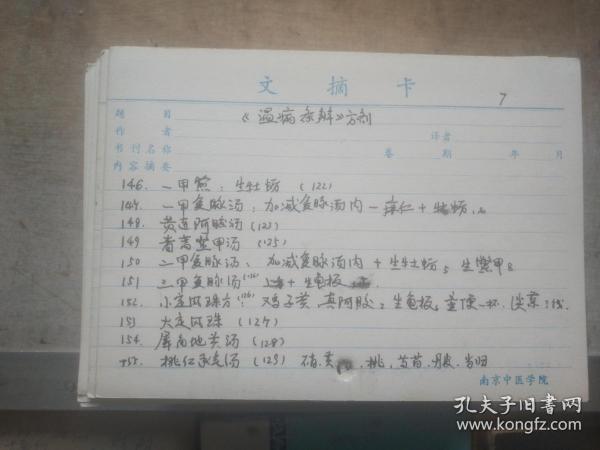 文 摘 卡
7
题 目 《温病条辨》方剂
作 者 译者
书刊名称 卷 期 年 月
内容摘要
146. 一甲煎：生牡蛎 (122)
147. 一甲复脉汤：加减复脉汤内－麻仁＋牡蛎
148. 黄连阿胶汤 (123)
149 青蒿鳖甲汤 (125)
150 二甲复脉汤：加减复脉汤内＋生牡蛎5 生鳖甲8
151 三甲复脉汤 ＋生龟板
152. 小定风珠方：鸡子黄，真阿胶2 生龟板，童便一杯，淡菜
153 大定风珠 (127)
154. 犀角地黄汤 (128)
155. 桃仁承气汤 (129) 硝，黄，桃，芍，丹皮，当归
南京中医学院
孔夫子旧书网
www.kongfz.com